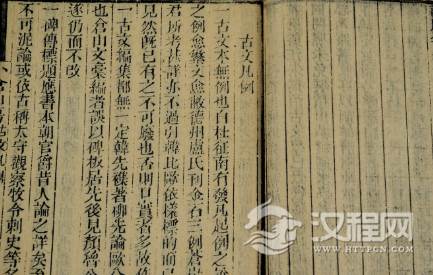 古文凡例
一古文本無例也自杜征南有發凡起例之
之例愈繁文愈敝德州盧氏刊金石三例蒼
君所考甚詳亦不過引韓比歐依樣標的而已
見然旣已有之不可廢也否則口實者多故
一古文編集都無一定韓先雜著柳先論歐
也倉山文彙編者誤以碑板居先後見顏魯公
遂仍而不改
一碑傳標題應書本朝官爵昔人論之詳矣至
不可泥論或依古稱太守觀察牧令刺史等
汉程网
HTTPCN.COM